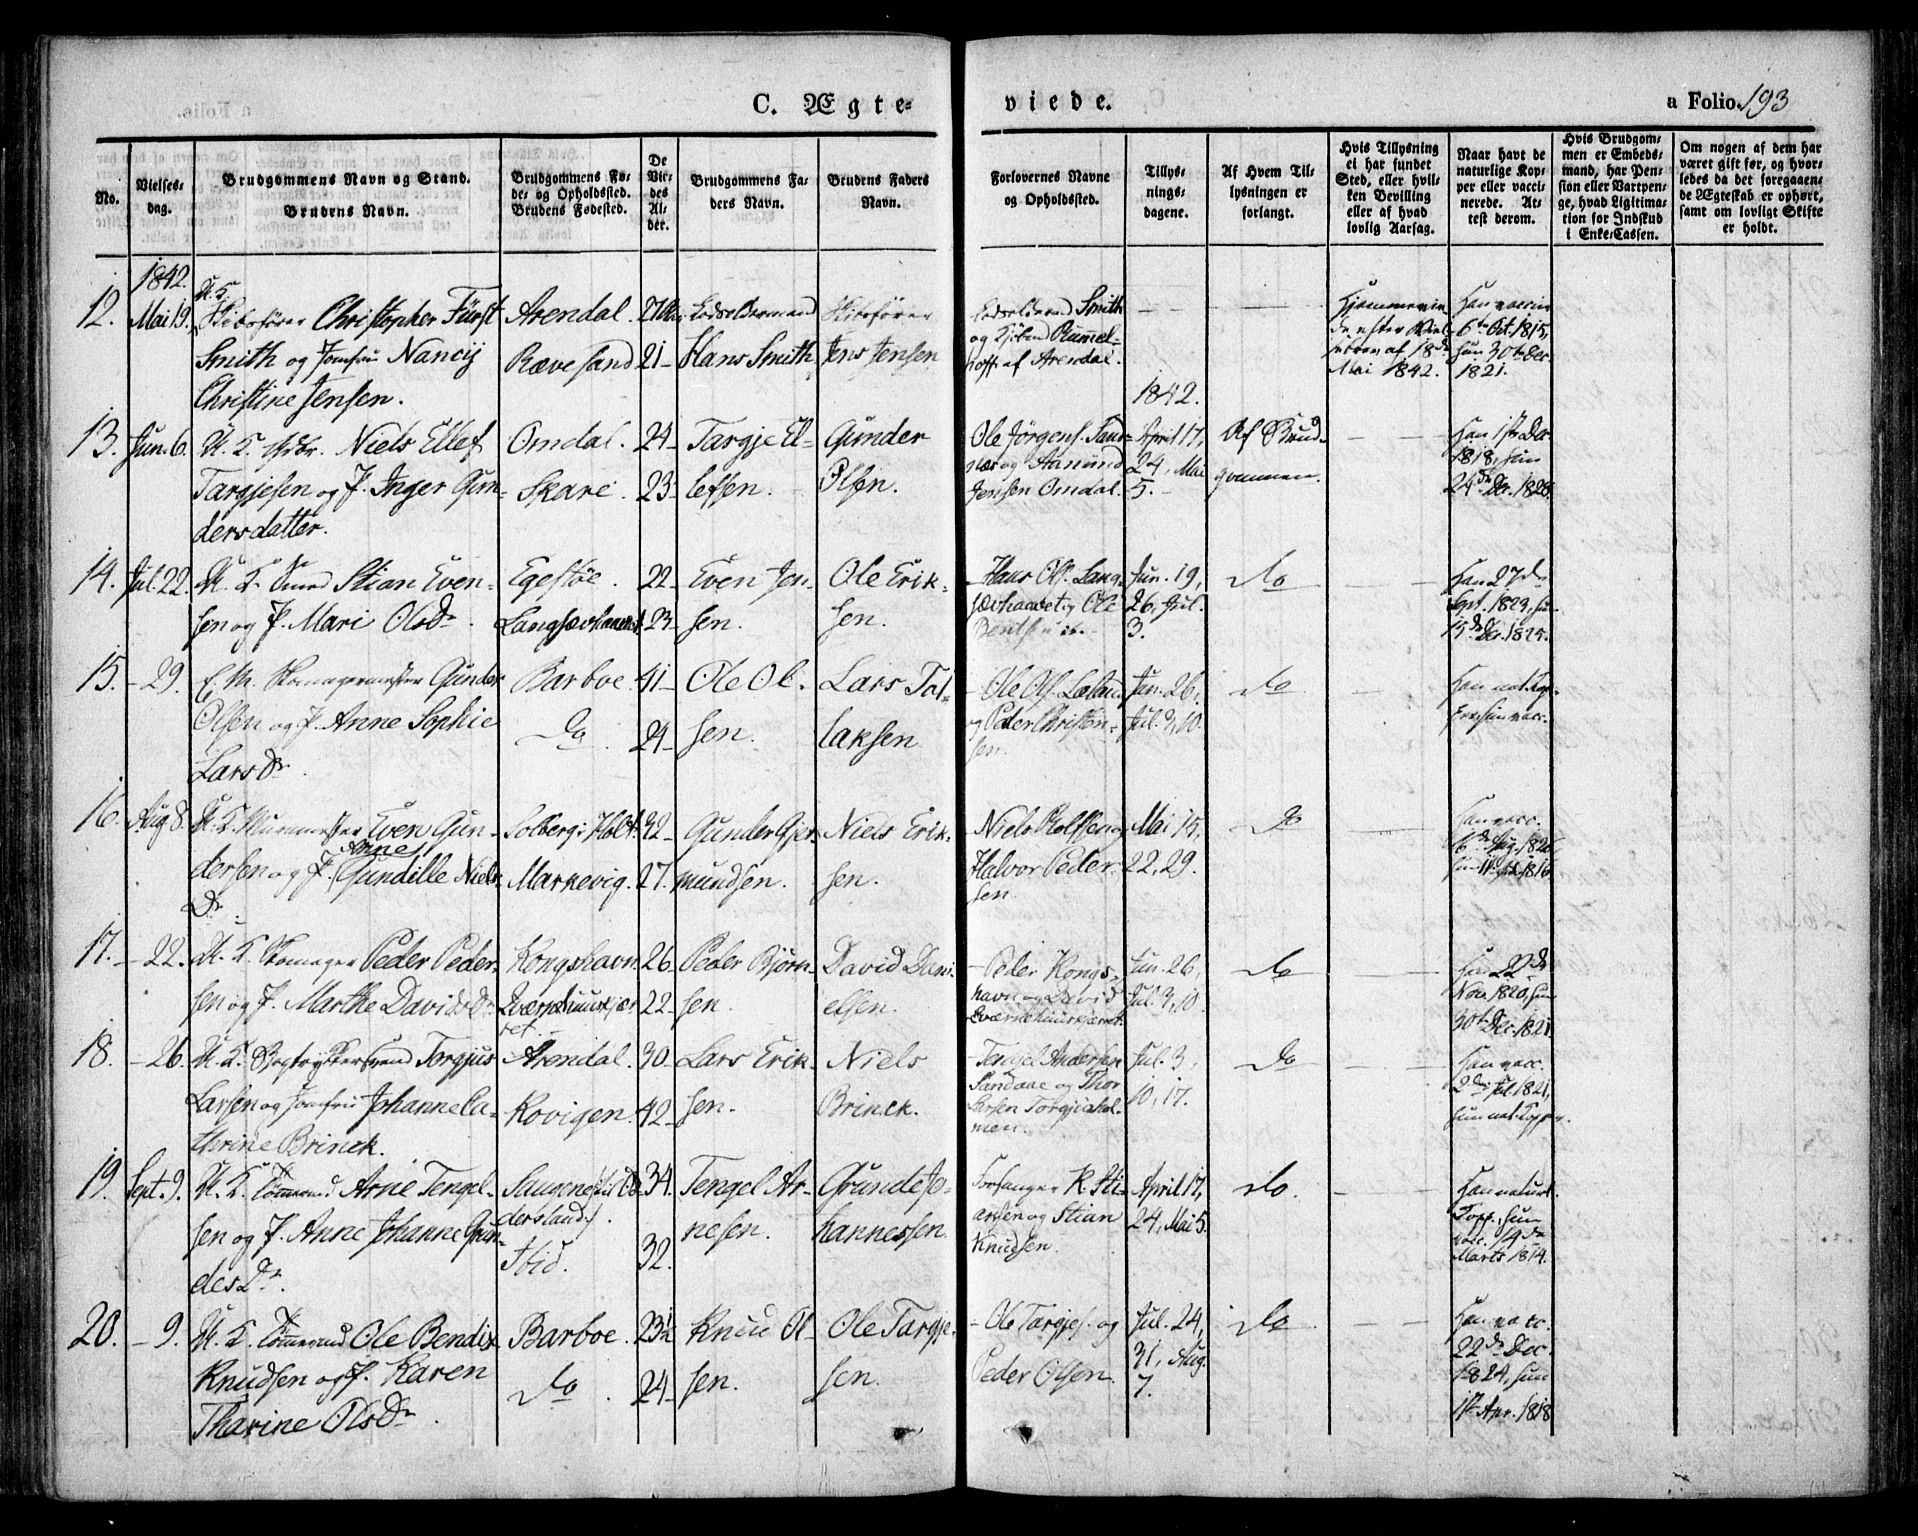 C. Ægte=
viede.
a Folio.193
No.
Vielses-
dag.
Brudgommens Navn og Stand.
Brudens Navn.
Brudgommens Fø-
de- og Opholdssted.
Brudens Fødested.
De
Vie-
des
Al-
der.
Brudgommens Fa-
ders Navn.
Brudens Faders
Navn.
Forlovernes Navne
og Opholdssted.
Tillys-
nings-
dagene.
Af Hvem Til-
lysningen er
forlangt.
Hvis Tillysning
ei har fundet
Sted, eller hvil-
ken Bevilling
eller af hvad
lovlig Aarsag.
Naar havt de
naturlige Kop-
per eller vacci-
nerede. At-
test derom.
Hvis Brudgom-
men er Embeds-
mand, har Pen-
sion eller Vartpen-
ge, hvad Ligitima-
tion for Indskud
i Enke-Cassen.
Om nogen af dem har
været gift før, og hvor-
ledes da det foregaaen-
de Ægteskab er ophørt,
samt om lovligt Skifte
er holdt.
1842.
12. Mai 19.
U. K.
Skibsfører Christopher Fürst
Smith og Jomfru Nancy
Christine Jensen.
Arendal.
Rævesand
21
Hans Smith
Skibsfører
Jens Jensen
Smith
og Rummel-
hoff af Arendal.
Hjemmevie-
de efter
af 18de
Mai 1842.
Han vaccin
6te Oct. 1815,
hun 30te Dec.
1821.
13. Jun. 6.
U. K. Niels Ellef
Targjesen og P. Inger Gun-
dersdatter.
Omdal.
Skare.
24
23
Targje El-
lefsen.
Gunder
Olsen.
Ole Jørgens. Sand-
nes og Aanund
Jensen Omdal.
1842.
April 17,
24, Mai
5.
Af Brud-
gommen.
Han 1ste Dec.
1818, hun
24de Dec. 1828.
14. Jul. 22.
U. K. Smed Stian Even-
sen og P. Mari Olsdr.
Egestøe.
Langsævhaavet
22
23
Even Jen-
sen.
Ole Erik-
sen.
Hans Ols. Lang-
sævhaavet og Ole
Bents. ib.
Jun. 19,
26, Jul.
3.
do
Han 27de
Sept. 1829, hun
15de Dec. 1825.
15. - 29.
E. M. Skomagermester Gunder
Olsen og P. Anne Sophie
Larsdr.
Barboe.
do.
41
24
Ole Ol-
sen.
Lars Tol-
laksen
Ole Ols.
og Peder Christen-
sen.
Jun. 26,
Jul. 3, 10.
do
Han nat. Kop-
per, hun vacc.
16. Aug. 8.
U. K. Murmester Even Gun-
dersen og P. Anne Gundille Niels
Dr.
Solberg i Holt.
Marnevig.
32
27.
Gunder Gjer-
mundsen.
Niels Erik-
sen.
Niels Rolfsen og
Halvor Peder-
sen.
Mai 15,
22, 29.
do
Han vacc.
17. - 22.
U. K. Skomager Peder Peder-
sen og P. Marthe Davidsdr.
Kongshavn
Qværnhuuskjær
ret
26
22
Peder Bjørn-
sen.
David Dani-
elsen.
Peder Kongs-
havn og David
Qværnhuuskjæret.
Jun. 26,
Jul. 3, 10.
do
Han 22de
Nov. 1820, hun
30te Dec. 1821.
18. - 26.
U. K. Bogtrykkersvend Torgjus
Larsen og Jomfru Johanne Ca-
thrine Brinck.
Arendal.
Kovigen.
30
42
Lars Erik-
sen.
Niels
Brinck.
Tengel Andersen
Sandaae og Thor
Larsen Torgjushol-
men.
Jul. 3,
10, 17.
do
Han vacc.
2den Jul. 1821,
hun nat. Kopper.
19. Sept. 9.
U. K. Tømmermd Arne Tengel-
sen og P. Anne Johanne Grun-
des Dr.
Ibid.
34.
32.
Tengel Ar-
nesen.
Grunde Jo-
hannessen.
Forsanger K. Sti-
ansen og Stian
Knudsen.
April 17,
24, Mai 5.
do.
Han naturl.
Kopp., hun
vacc. 14de
Marts 1814.
20. - 9.
U. K. Tømmermd Ole Bendix
Knudsen og P. Karen
Tharine Olsdr.
Barboe.
do.
23½
24
Knud Ol-
sen.
Ole Targje-
sen.
Ole Targjes. og
Peder Olsen.
Jul. 24,
31, Aug.
7.
do
Han vacc.
22de Dec.
1824, hun
1ste Apr. 1818